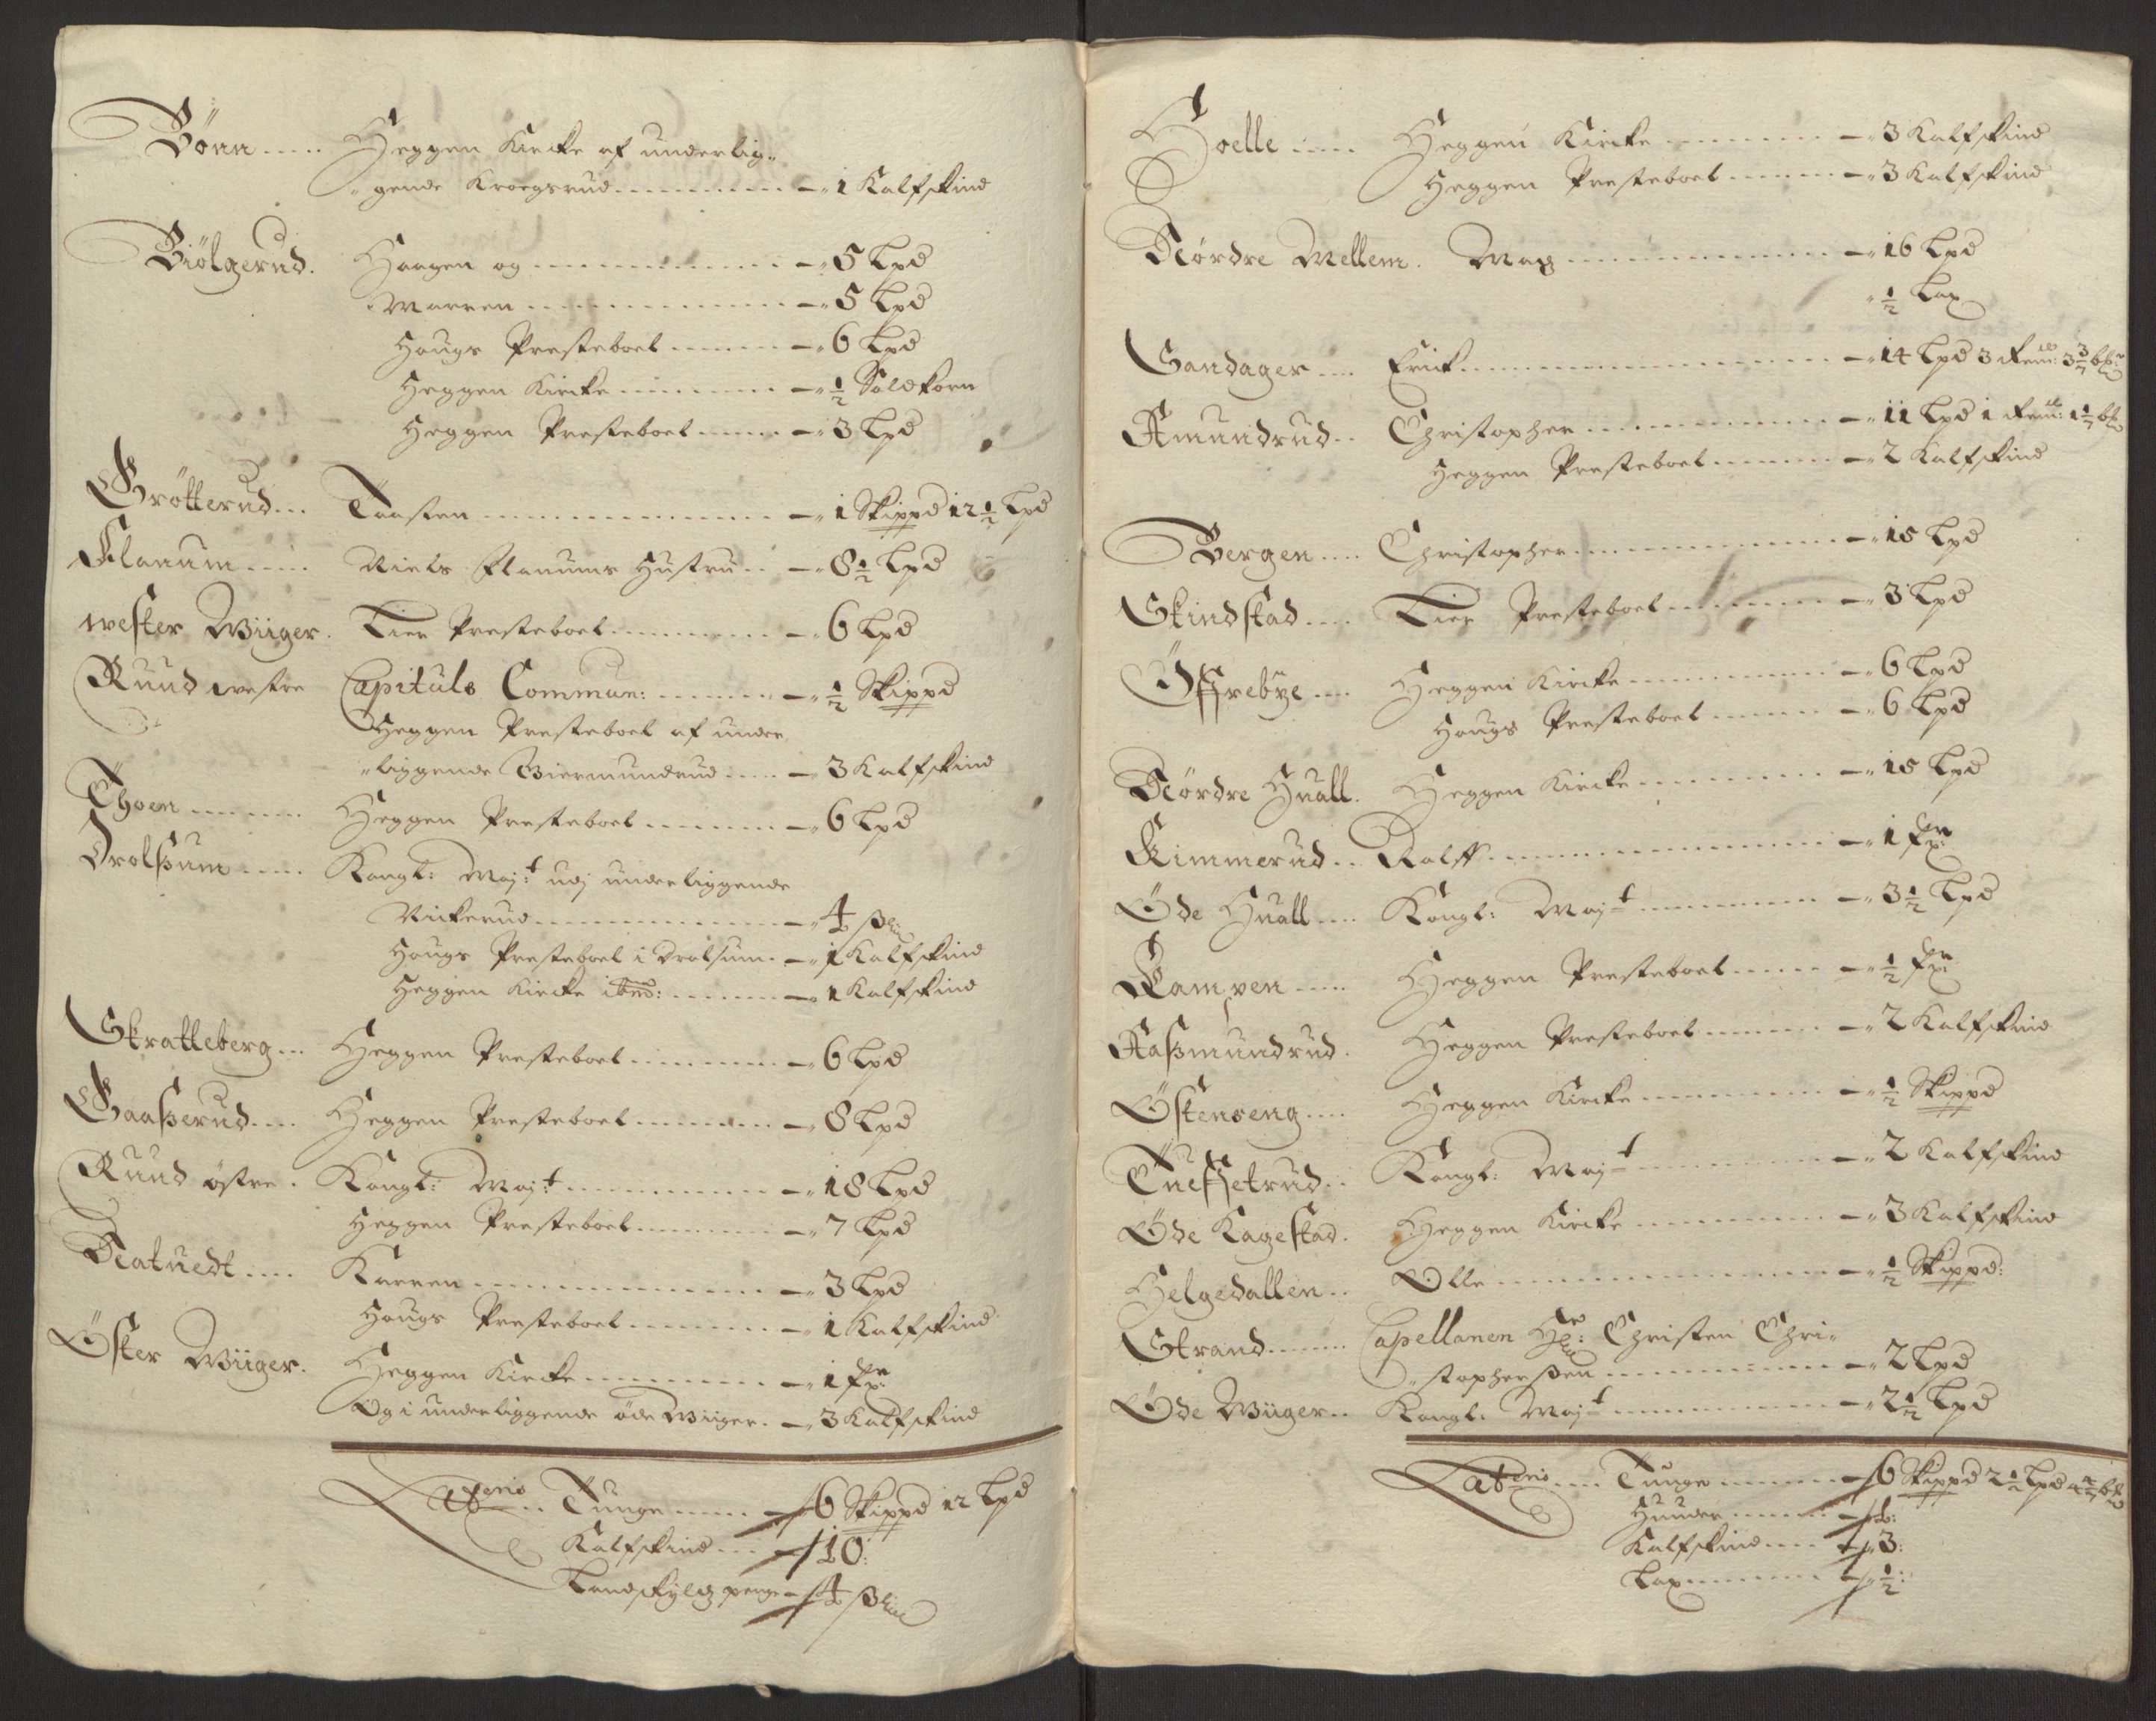 Bönn ..... Heggen Kircke af underlig„
„gende Kroegsrud ......... –„ 1 Kalfskind
Biölgerud. Haagen og ......... –„ 5 Lpd
Marren ......... –„ 5 Lpd
Hougs Presteboel ......... –„ 6 Lpd
Heggen Kircke ......... –„ ½ Soldkorn
Heggen Presteboel ..... –„ 3 Lpd
Gröttcrud ... Taasten ......... –„ 1 Skippd 12½ Lpd
Flanum ..... Niels Flanums Hustru .. –„ 8½ Lpd
wester Wiiger. Lier Presteboel ......... –„ 6 Lpd
Ruud westre Capituls Commun: ......... –„ ½ Skippd
Heggen Presteboel af under„
„liggende Biermundrud ..... – 3 Kalfskind
Thoen ....... Heggen Presteboel ....... –„ 6 Lpd
Drolssum ..... Kongl: Maj:t udj underliggende
Vickerud ......... –„ 4 ß
Hougs Presteboel i Drolsum. –„ 1 Kalfskind
Heggen Kircke ibnd: ....... – 1 Kalfskind
Skratteberg ... Heggen Presteboel ......... –„ 6 Lpd
Gaasserud .... Heggen Presteboel ....... –„ 8 Lpd
Ruud östre . Kongl: Maj:t ......... –„ 18 Lpd
Heggen Presteboel ....... –„ 7 Lpd
Natuedt .... Karren ......... –„ 3 Lpd
Hougs Presteboel ....... –„ 1 Kalfskind
Öster Wiiger. Heggen Kircke ......... –„ 1 fr:
Og i underliggende öde Wiiger. –„ 3 Kalfskind
Lateris .. Tunge ..... 6 Skippd 12 Lpd
Kalfskind ... 10:
Landskyld penge – 4 ß
Hoelle ..... Heggen Kircke ......... –„ 3 Kalfskind
Heggen Presteboel ...... –„ 3 Kalfskind
Nördre Mellem. Mag ......... –„ 16 Lpd
„ ½ Lax
Sandager .... Erick ......... –„ 14 Lpd 3 Rem: 3 3/7 bb
Amundrud .. Christopher ......... –„ 11 Lpd 1 Rem: 1 1/7 bb
Heggen Presteboel ...... –„ 2 Kalfskind
Bergen .... Christopher ......... –„ 15 Lpd
Skindstad .... Lier Presteboel ......... –„ 3 Lpd
Öffrebÿe .... Heggen Kircke ......... –„ 6 Lpd
Hougs Presteboel ...... –„ 6 Lpd
Nördre Huall. Heggen Kircke ......... –„ 15 Lpd
Kimmerud .. Rolff ......... –„ 1 fr:
Öde Huall .... Kongl: Maj:t ......... –„ 3½ Lpd
Kampen ..... Heggen Presteboel ..... –„ ½ fr:
Aassmundrud. Heggen Presteboel ....... –„ 2 Kalfskind
Östenseng .... Heggen Kircke ......... –„ ½ Skippd
Tueffetrud .. Kongl: Maj:t ......... –„ 2 Kalfskind
Öde Kagestad. Heggen Kircke ......... –„ 3 Kalfskind
Helgedallen .. Olle ......... –„ ½ Skippd:
Strand ....... Capellanen Hr: Christen Chri„
„stopherssen ......... –„ 2 Lpd
Öde Wiiger .. Kongl: Maj:t ......... –„ 2½ Lpd
Lateris .... Tunge ..... 6 Skippd 2½ Lpd 4 4/7 bb
Huuder .....
Kalfskind .... 13:
Lax ....... ½: